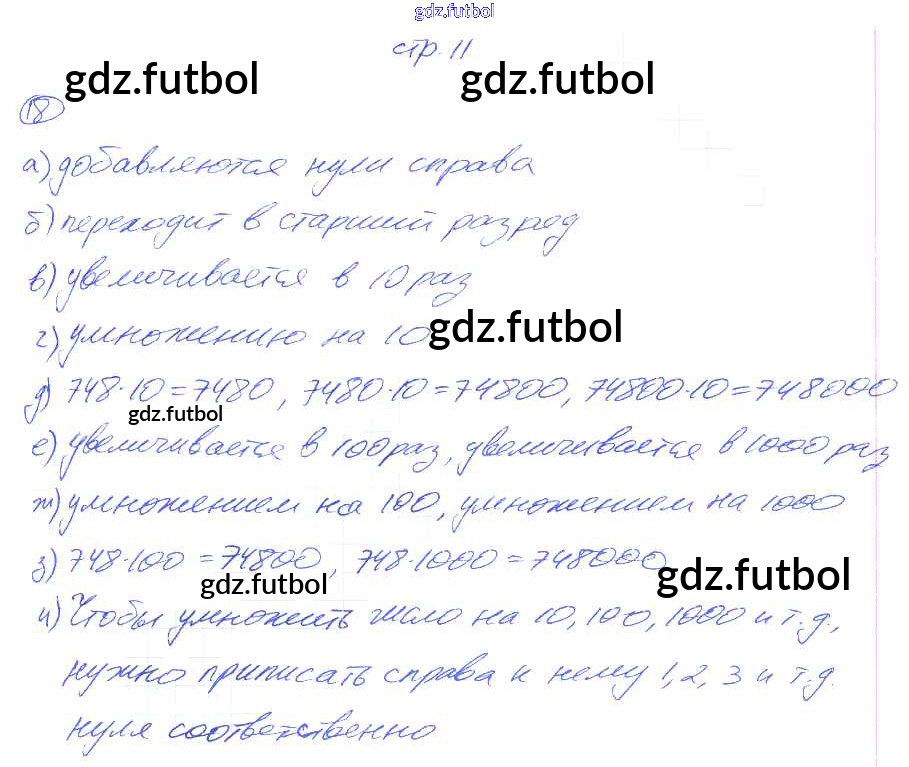 gdz.futbol
стр. 11
gdz.futbol gdz.futbol
18
а) добавляются нули справа
б) переходит в старший разряд
в) увеличивается в 10 раз
г) умножению на 10 gdz.futbol
д) 748·10=7480, 7480·10=74800, 74800·10=748000
gdz.futbol
е) увеличивается в 100 раз, увеличивается в 1000 раз
ж) умножением на 100, умножением на 1000
з) 748·100=74800, 748·1000=748000
gdz.futbol gdz.futbol
и) Чтобы умножить число на 10, 100, 1000 и т.д.,
нужно приписать справа к нему 1, 2, 3 и т.д.
нуля соответственно